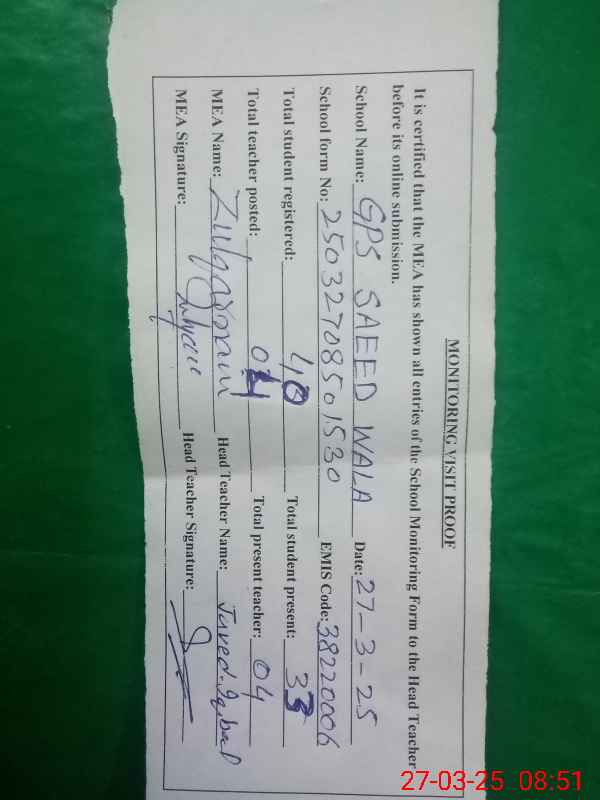 MONITORING VISIT PROOF
It is certified that the MEA has shown all entries of the School Monitoring Form to the Head Teacher
before its online submission.
School Name: GPS SAEED WALA Date: 27-3-25
School form No: 2503270850 1530 EMIS Code: 38220006
Total student registered: 40 Total student present: 33
Total teacher posted: 04 Total present teacher: 04
MEA Name: Head Teacher Name: Javed Iqbal
MEA Signature: Head Teacher Signature:
27-03-25 08:51